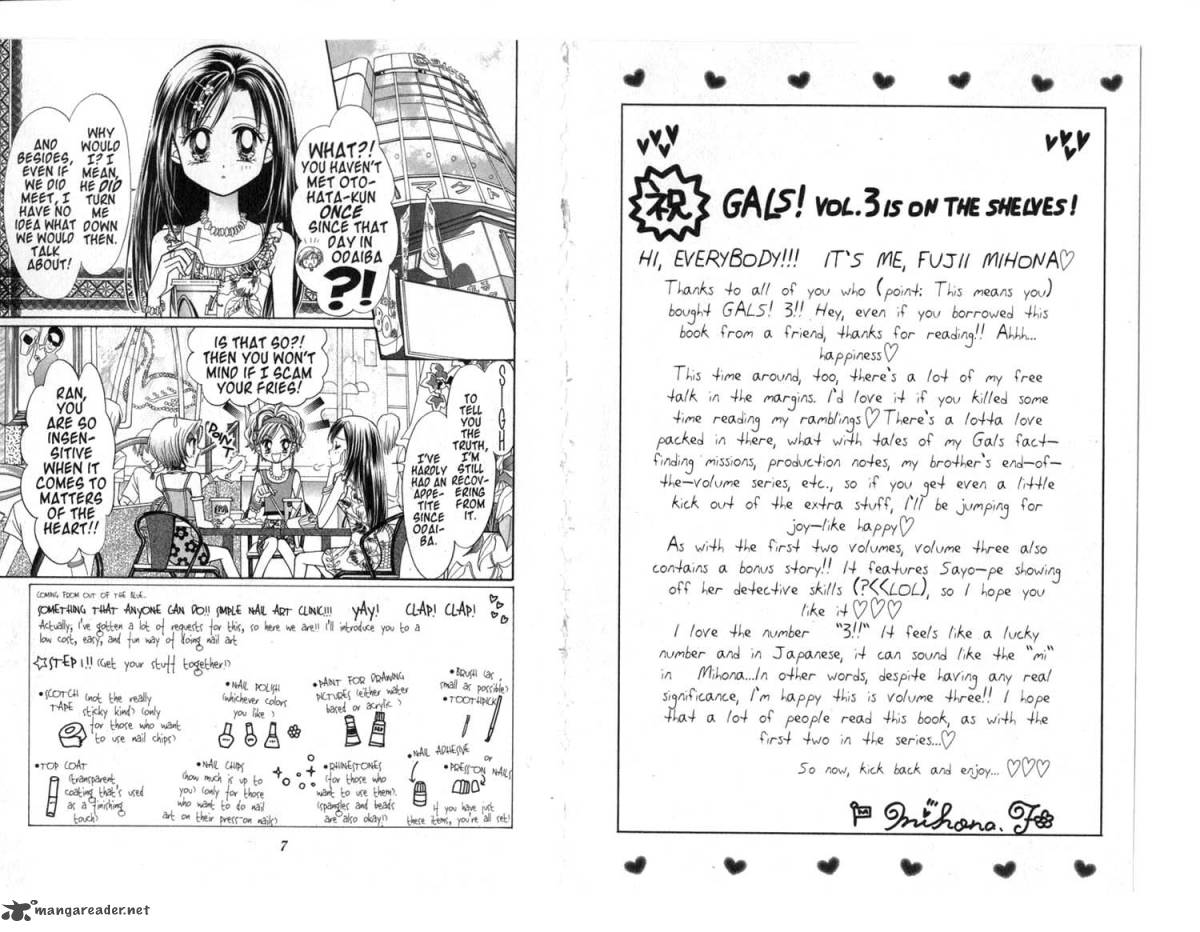 WHAT?!
YOU HAVEN'T
MET OTO-
HATA-KUN
ONCE
SINCE THAT
DAY IN
ODAIBA
?!
WHY
WOULD
I? I
MEAN,
HE DID
TURN
ME
DOWN
THEN.
AND
BESIDES,
EVEN IF
WE DID
MEET, I
HAVE NO
IDEA WHAT
WE WOULD
TALK
ABOUT!
SIGH
TO
TELL
YOU
THE
TRUTH,
I'M
STILL
RECOV-
ERING
FROM
IT.
I'VE
HARDLY
HAD AN
APPE-
TITE
SINCE
ODAI-
BA.
IS THAT SO?!
THEN YOU WON'T
MIND IF I SCAM
YOUR FRIES!
POINT
RAN,
YOU
ARE SO
INSEN-
SITIVE
WHEN IT
COMES TO
MATTERS
OF THE
HEART!!
COMING FROM OUT OF THE BLUE...
SOMETHING THAT ANYONE CAN DO!! SIMPLE NAIL ART CLINIC!!! YAY! CLAP! CLAP!
Actually, I've gotten a lot of requests for this, so here we are!! I'll introduce you to a
low cost, easy, and fun way of doing nail art
☆STEP 1!! (Get your stuff together!)
•SCOTCH TAPE (not the really
sticky kind) (only
for those who want
to use nail chips)
•NAIL POLISH
(whichever colors
you like)
•PAINT FOR DRAWING
PICTURES (either water
based or acrylic)
•BRUSH (as
small as possible)
•TOOTHPICK
•TOP COAT
(transparent
coating that's used
as a finishing
touch)
•NAIL CHIPS
(how much is up to
you) (only for those
who want to do nail
art on their press-on nails)
•RHINESTONES
(for those who
want to use them).
(spangles and beads
are also okay!)
•NAIL ADHESIVE
or
•PRESS-ON NAILS
If you have just
these items, you're all set!
7
祝 GALS! VOL.3 IS ON THE SHELVES!
HI, EVERYBODY!!! IT'S ME, FUJII MIHONA♡
Thanks to all of you who (point: This means you)
bought GALS! 3!! Hey, even if you borrowed this
book from a friend, thanks for reading!! Ahhh...
happiness♡
This time around, too, there's a lot of my free
talk in the margins. I'd love it if you killed some
time reading my ramblings♡ There's a lotta love
packed in there, what with tales of my Gals fact-
finding missions, production notes, my brother's end-of-
the-volume series, etc., so if you get even a little
kick out of the extra stuff, I'll be jumping for
joy-like happy♡
As with the first two volumes, volume three also
contains a bonus story!! It features Sayo-pe showing
off her detective skills (?<<LOL), so I hope you
like it♡♡♡
I love the number "3!!" It feels like a lucky
number and in Japanese, it can sound like the "mi"
in Mihona...In other words, despite having any real
significance, I'm happy this is volume three!! I hope
that a lot of people read this book, as with the
first two in the series...♡
So now, kick back and enjoy... ♡♡♡
Mihona. F
mangareader.net